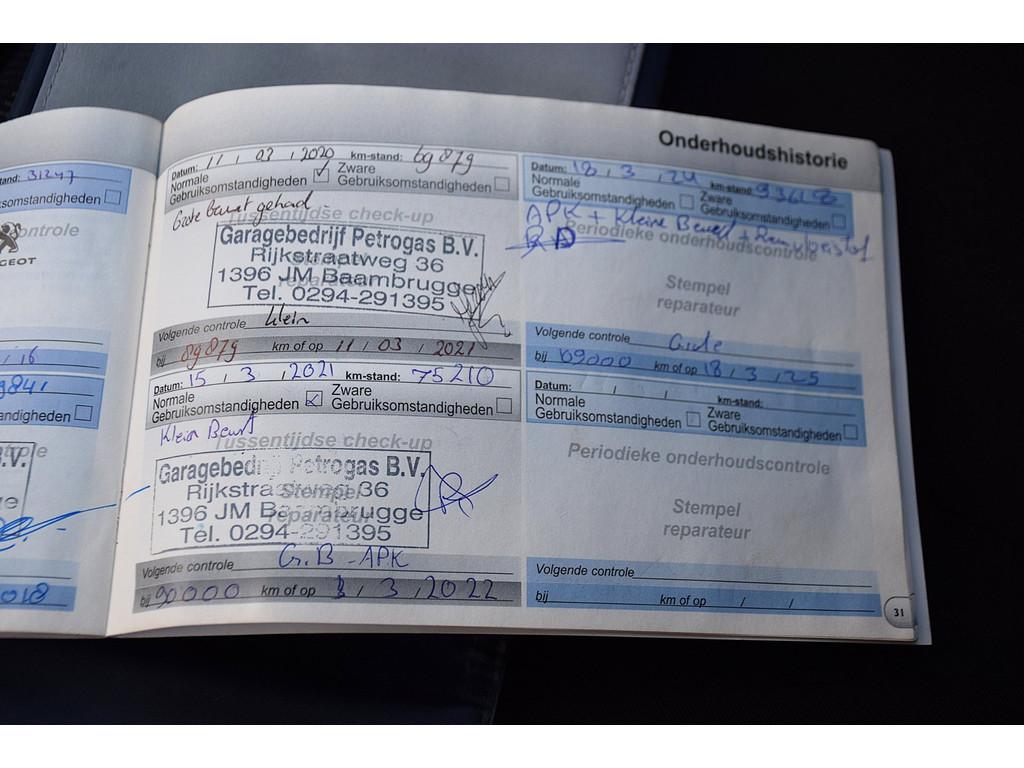 Onderhoudshistorie
tand: 31247
somstandigheden
ontrole
GEOT
/ 16
9841
andigheden
.V.
2018
Datum: 11 / 03 / 2020 km-stand: 69879
Normale Gebruiksomstandigheden ✓ Zware Gebruiksomstandigheden
Grote beurt gehad
Tussentijdse check-up
Garagebedrijf Petrogas B.V.
Rijkstraatweg 36
1396 JM Baambrugge
Tel. 0294-291395
Volgende controle klein
bij 89879 km of op 11 / 03 / 2021
Datum: 15 / 3 / 2021 km-stand: 75210
Normale Gebruiksomstandigheden Zware Gebruiksomstandigheden
Klein Beurt
Tussentijdse check-up
Garagebedrijf Petrogas B.V.
Rijkstraatweg 36
Stempel
1396 JM Baambrugge
reparateur
Tel. 0294-291395
Volgende controle Gr.B - APK
bij 90000 km of op 3 / 3 / 2022
Datum: 18 / 3 / 24 km-stand: 93618
Normale Gebruiksomstandigheden Zware Gebruiksomstandigheden
APK + Kleine Beurt + Remvloeistof
Periodieke onderhoudscontrole
Stempel
reparateur
Volgende controle Grote
bij 109000 km of op 18 / 3 / 25
Datum: / / km-stand:
Normale Gebruiksomstandigheden Zware Gebruiksomstandigheden
Periodieke onderhoudscontrole
Stempel
reparateur
Volgende controle
bij km of op / /
31